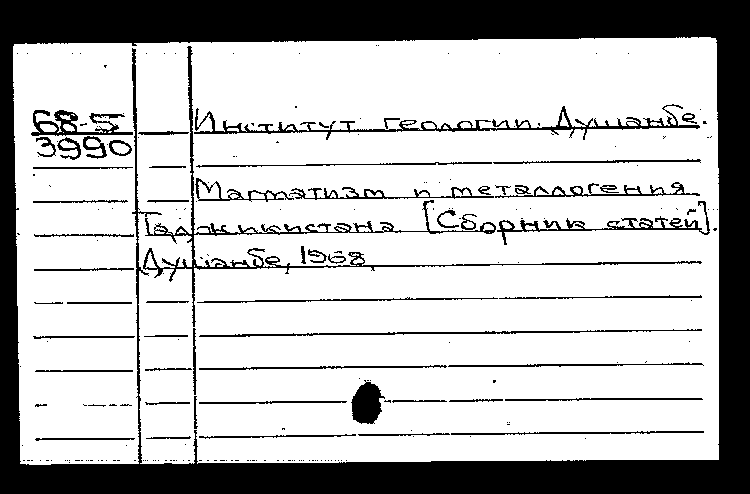 68-5
3990
Институт геологии. Душанбе.
Магматизм и металлогения
Таджикистана [Сборник статей].
Душанбе, 1968,